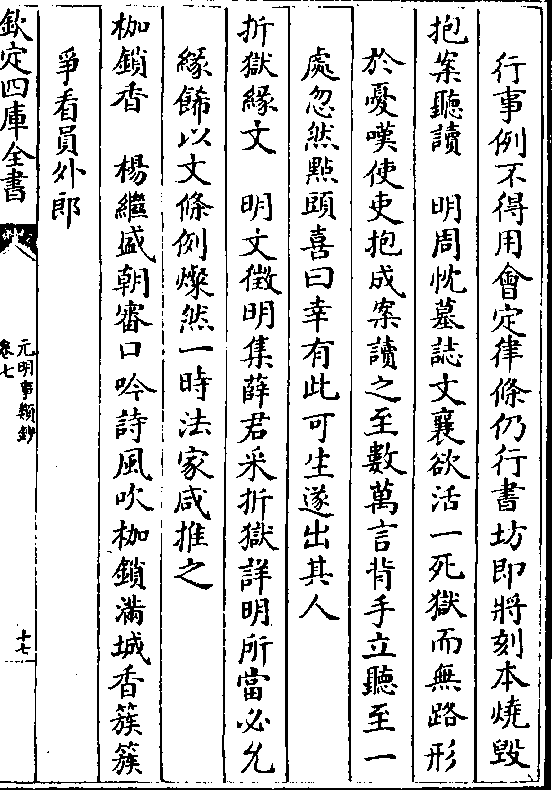 行事例不得用會定律條仍行書坊即將刻本燒毀
抱案聽讀　明周忱墓誌文襄欲活一死獄而無路形
於憂嘆使吏抱成案讀之至數萬言背手立聽至一
處忽然點頭喜曰幸有此可生遂出其人
折獄緣文　明文徵明集薛君采折獄詳明所當必允
緣飾以文條例燦然一時法家咸推之
枷鎖香　楊繼盛朝審口吟詩風吹枷鎖滿城香簇簇
爭看員外郎
欽定四庫全書
元明事類鈔
卷七
十七